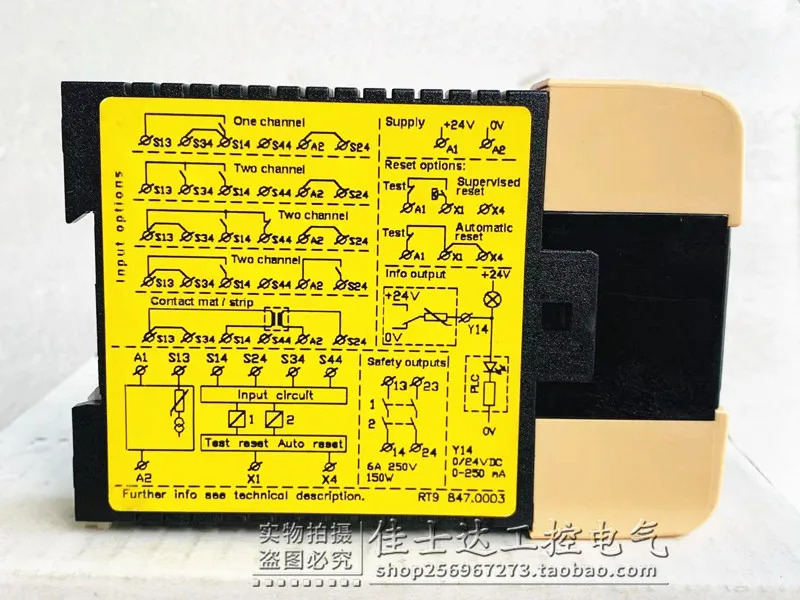 Input options
One channel
S13 S34 S14 S44 A2 S24
Two channel
S13 S34 S14 S44 A2 S24
Two channel
S13 S34 S14 S44 A2 S24
Two channel
S13 S34 S14 S44 A2 S24
Contact mat / strip
S13 S34 S14 S44 A2 S24
Supply +24V 0V
A1 A2
Reset options:
Test Supervised
reset
A1 X1 X4
Test Automatic
reset
A1 X1 X4
Info output +24V
+24V
0V
Y14
PLC
0V
Y14
0/24VDC
0-250 mA
A1 S13 S14 S24 S34 S44
Input circuit
1 2
Test reset Auto reset
A2 X1 X4
Safety outputs
13 23
1
2
14 24
6A 250V
150W
Further info see technical description. RT9 847.0003
实物拍摄
盗图必究
佳士达工控电气
shop256967273.taobao.com